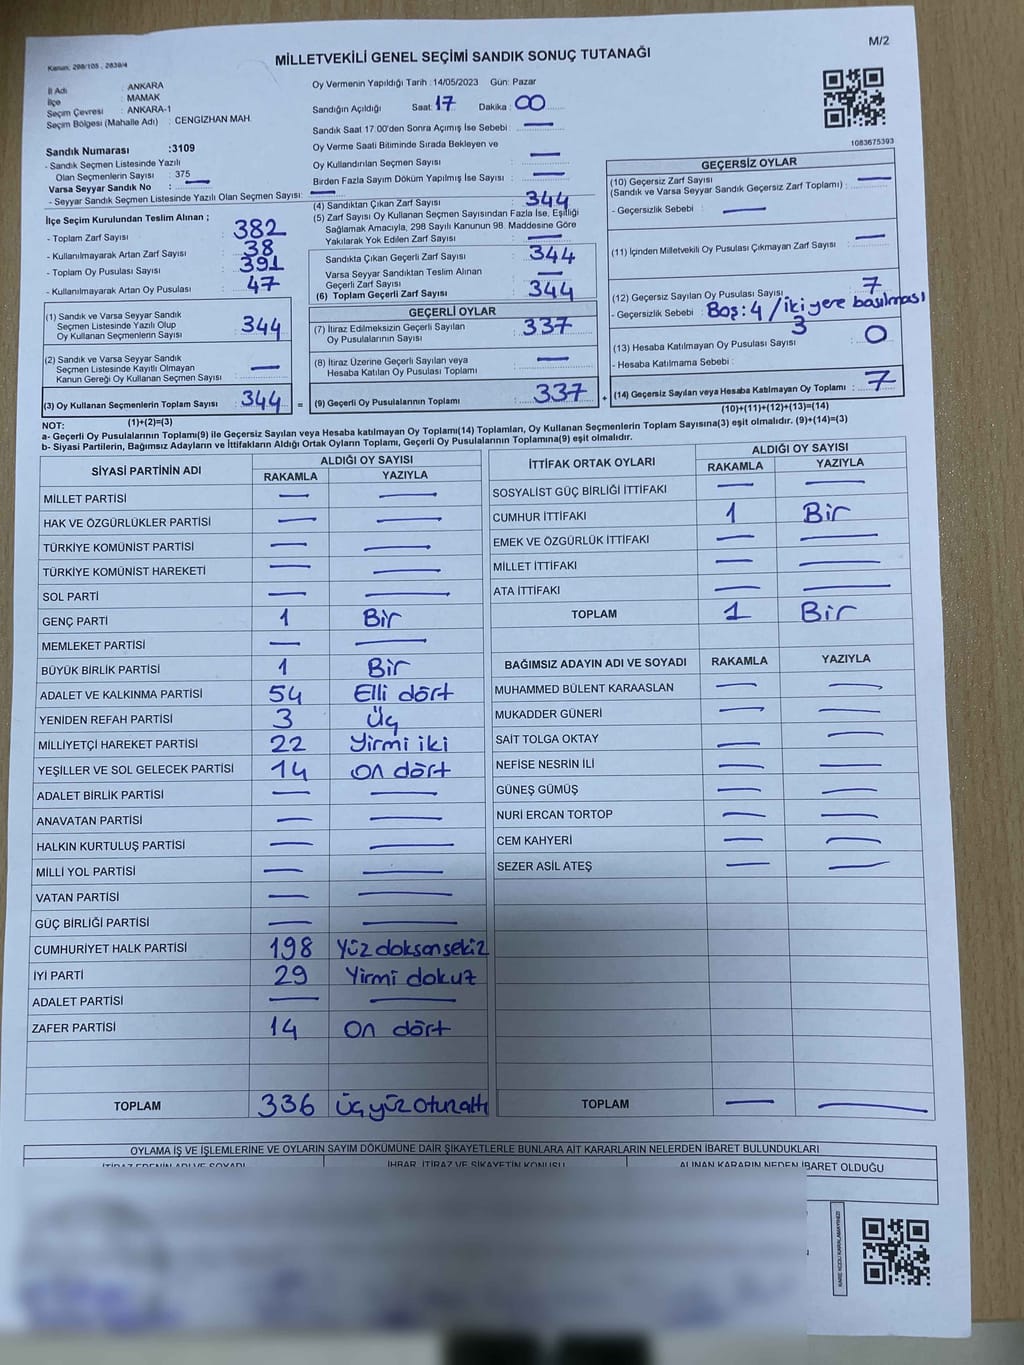 M/2
Kanun: 298/105 , 2839/4
MİLLETVEKİLİ GENEL SEÇİMİ SANDIK SONUÇ TUTANAĞI
İl Adı : ANKARA
İlçe : MAMAK
Seçim Çevresi : ANKARA-1
Seçim Bölgesi (Mahalle Adı) : CENGİZHAN MAH.
Sandık Numarası :3109
- Sandık Seçmen Listesinde Yazılı
Olan Seçmenlerin Sayısı : 375
Varsa Seyyar Sandık No : —
- Seyyar Sandık Seçmen Listesinde Yazılı Olan Seçmen Sayısı: —
İlçe Seçim Kurulundan Teslim Alınan ;
- Toplam Zarf Sayısı : 382
- Kullanılmayarak Artan Zarf Sayısı : 38
- Toplam Oy Pusulası Sayısı : 391
- Kullanılmayarak Artan Oy Pusulası : 47
(1) Sandık ve Varsa Seyyar Sandık
Seçmen Listesinde Yazılı Olup
Oy Kullanan Seçmenlerin Sayısı : 344
(2) Sandık ve Varsa Seyyar Sandık
Seçmen Listesinde Kayıtlı Olmayan
Kanun Gereği Oy Kullanan Seçmen Sayısı : —
(3) Oy Kullanan Seçmenlerin Toplam Sayısı : 344 =
(1)+(2)=(3)
Oy Vermenin Yapıldığı Tarih : 14/05/2023 Gün: Pazar
Sandığın Açıldığı Saat: 17 Dakika : 00
Sandık Saat 17:00'den Sonra Açımış İse Sebebi : —
Oy Verme Saati Bitiminde Sırada Bekleyen ve
Oy Kullandırılan Seçmen Sayısı : —
Birden Fazla Sayım Döküm Yapılmış İse Sayısı : —
(4) Sandıktan Çıkan Zarf Sayısı : 344
(5) Zarf Sayısı Oy Kullanan Seçmen Sayısından Fazla İse, Eşitliği
Sağlamak Amacıyla, 298 Sayılı Kanunun 98. Maddesine Göre
Yakılarak Yok Edilen Zarf Sayısı : —
Sandıkta Çıkan Geçerli Zarf Sayısı : 344
Varsa Seyyar Sandıktan Teslim Alınan
Geçerli Zarf Sayısı : —
(6) Toplam Geçerli Zarf Sayısı : 344
GEÇERLİ OYLAR
(7) İtiraz Edilmeksizin Geçerli Sayılan
Oy Pusulalarının Sayısı : 337
(8) İtiraz Üzerine Geçerli Sayılan veya
Hesaba Katılan Oy Pusulası Toplamı : —
(9) Geçerli Oy Pusulalarının Toplamı : 337 +
1083675393
GEÇERSİZ OYLAR
(10) Geçersiz Zarf Sayısı
(Sandık ve Varsa Seyyar Sandık Geçersiz Zarf Toplamı) : —
- Geçersizlik Sebebi : —
(11) İçinden Milletvekili Oy Pusulası Çıkmayan Zarf Sayısı : —
(12) Geçersiz Sayılan Oy Pusulası Sayısı : 7
- Geçersizlik Sebebi : Boş: 4 / İki yere basılması
3
(13) Hesaba Katılmayan Oy Pusulası Sayısı : 0
- Hesaba Katılmama Sebebi :
(14) Geçersiz Sayılan veya Hesaba Katılmayan Oy Toplamı : 7
(10)+(11)+(12)+(13)=(14)
NOT:
a- Geçerli Oy Pusulalarının Toplamı(9) ile Geçersiz Sayılan veya Hesaba katılmayan Oy Toplamı(14) Toplamları, Oy Kullanan Seçmenlerin Toplam Sayısına(3) eşit olmalıdır. (9)+(14)=(3)
b- Siyasi Partilerin, Bağımsız Adayların ve İttifakların Aldığı Ortak Oyların Toplamı, Geçerli Oy Pusulalarının Toplamına(9) eşit olmalıdır.
SİYASİ PARTİNİN ADI ALDIĞI OY SAYISI
RAKAMLA YAZIYLA
MİLLET PARTİSİ — —
HAK VE ÖZGÜRLÜKLER PARTİSİ — —
TÜRKİYE KOMÜNİST PARTİSİ — —
TÜRKİYE KOMÜNİST HAREKETİ — —
SOL PARTİ — —
GENÇ PARTİ 1 Bir
MEMLEKET PARTİSİ — —
BÜYÜK BİRLİK PARTİSİ 1 Bir
ADALET VE KALKINMA PARTİSİ 54 Elli dört
YENİDEN REFAH PARTİSİ 3 Üç
MİLLİYETÇİ HAREKET PARTİSİ 22 Yirmi iki
YEŞİLLER VE SOL GELECEK PARTİSİ 14 On dört
ADALET BİRLİK PARTİSİ — —
ANAVATAN PARTİSİ — —
HALKIN KURTULUŞ PARTİSİ — —
MİLLİ YOL PARTİSİ — —
VATAN PARTİSİ — —
GÜÇ BİRLİĞİ PARTİSİ — —
CUMHURİYET HALK PARTİSİ 198 Yüz doksan sekiz
İYİ PARTİ 29 Yirmi dokuz
ADALET PARTİSİ — —
ZAFER PARTİSİ 14 On dört
TOPLAM 336 Üç yüz otuz altı
İTTİFAK ORTAK OYLARI ALDIĞI OY SAYISI
RAKAMLA YAZIYLA
SOSYALİST GÜÇ BİRLİĞİ İTTİFAKI — —
CUMHUR İTTİFAKI 1 Bir
EMEK VE ÖZGÜRLÜK İTTİFAKI — —
MİLLET İTTİFAKI — —
ATA İTTİFAKI — —
TOPLAM 1 Bir
BAĞIMSIZ ADAYIN ADI VE SOYADI RAKAMLA YAZIYLA
MUHAMMED BÜLENT KARAASLAN — —
MUKADDER GÜNERİ — —
SAİT TOLGA OKTAY — —
NEFİSE NESRİN İLİ — —
GÜNEŞ GÜMÜŞ — —
NURİ ERCAN TORTOP — —
CEM KAHYERİ — —
SEZER ASİL ATEŞ — —
TOPLAM — —
OYLAMA İŞ VE İŞLEMLERİNE VE OYLARIN SAYIM DÖKÜMÜNE DAİR ŞİKAYETLERLE BUNLARA AİT KARARLARIN NELERDEN İBARET BULUNDUKLARI
İTİRAZ EDENİN ADI VE SOYADI İHBAR, İTİRAZ VE ŞİKAYETİN KONUSU ALINAN KARARIN NEDEN İBARET OLDUĞU